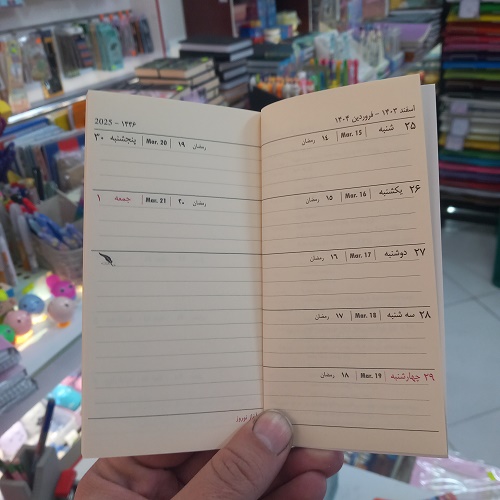 اسفند ۱۴۰۳ - فروردین ۱۴۰۴
۲۵ شنبه | Mar. 15 | ۱۴ رمضان
۲۶ یکشنبه | Mar. 16 | ۱۵ رمضان
۲۷ دوشنبه | Mar. 17 | ۱۶ رمضان
۲۸ سه شنبه | Mar. 18 | ۱۷ رمضان
۲۹ چهارشنبه | Mar. 19 | ۱۸ رمضان
2025 - ۱۴۴۶
۳۰ پنجشنبه | Mar. 20 | ۱۹ رمضان
۱ جمعه | Mar. 21 | ۲۰ رمضان